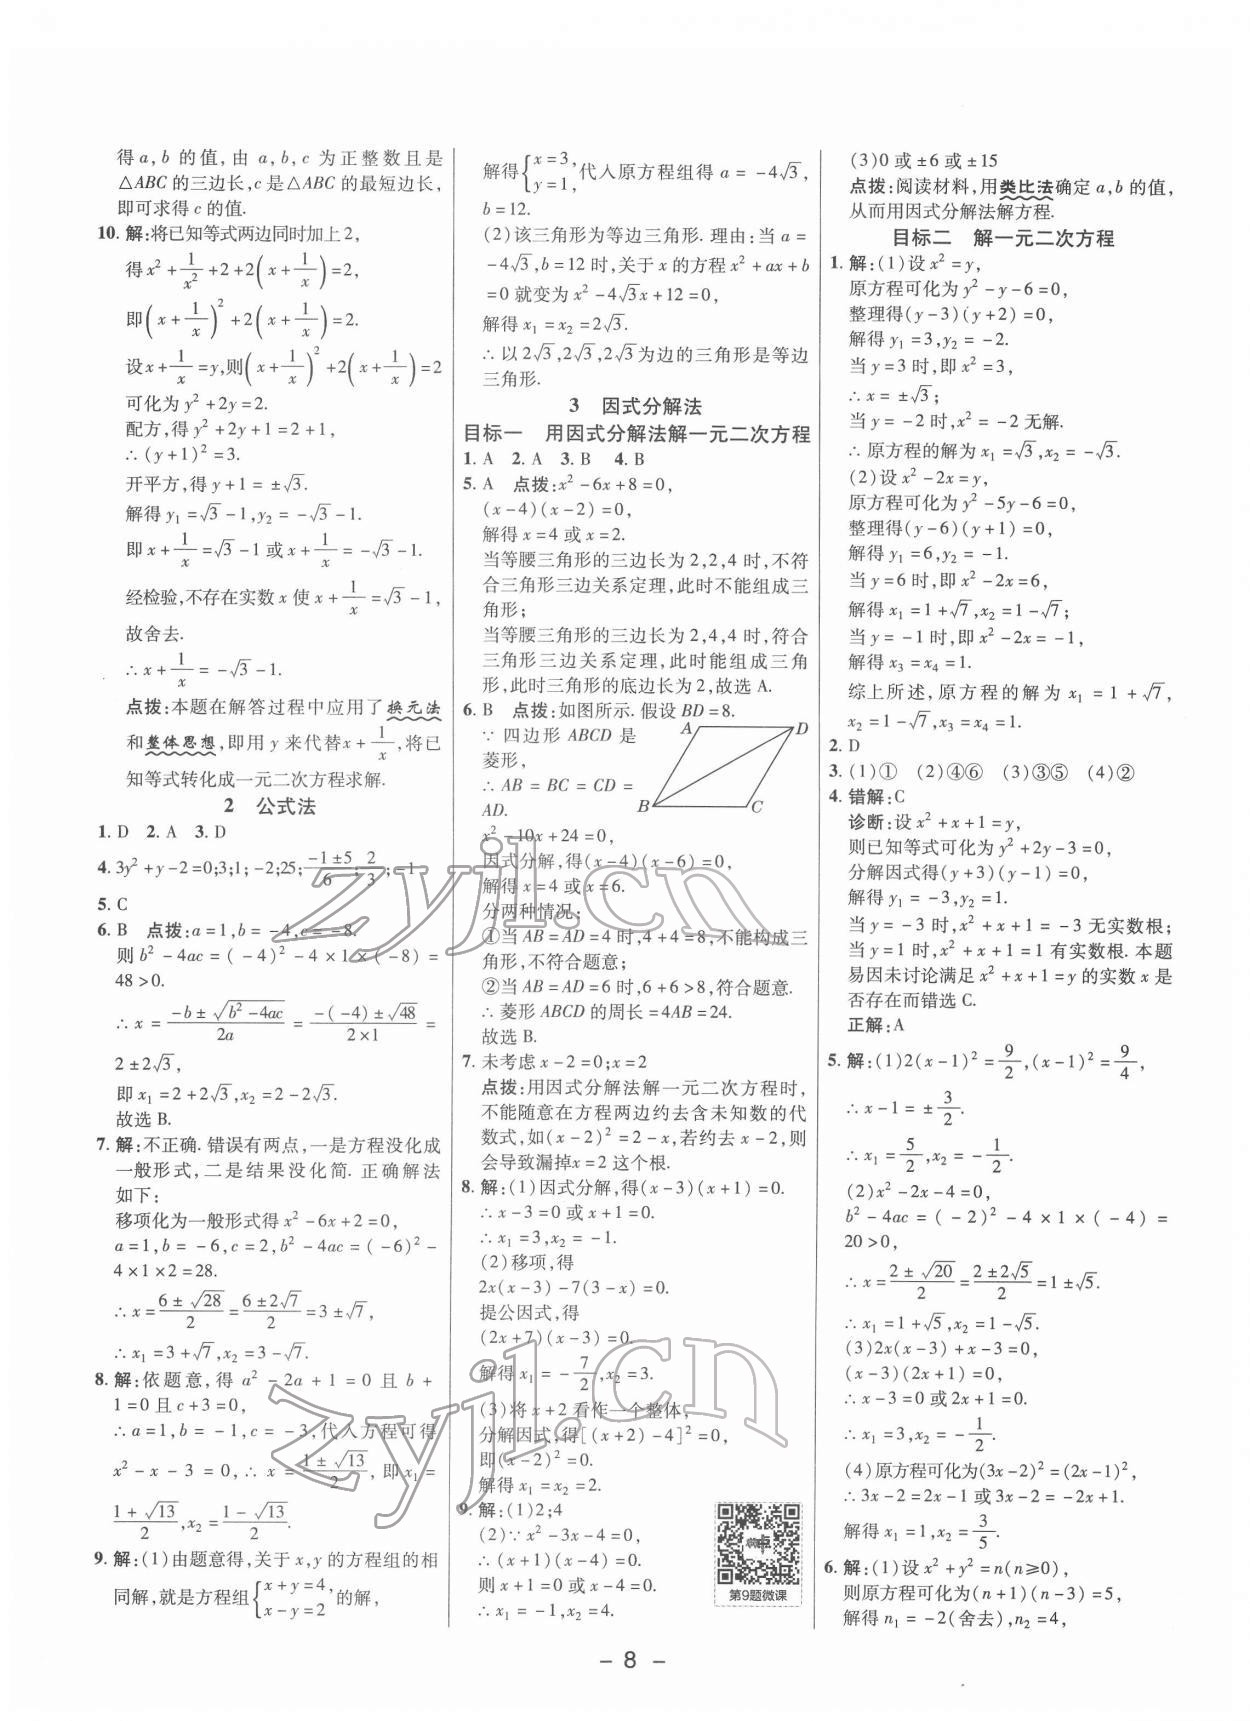 得 a,b 的值,由 a,b,c 为正整数且是
△ABC 的三边长,c 是△ABC 的最短边长,
即可求得 c 的值.
10. 解:将已知等式两边同时加上 2,
得 x²+1/x²+2+2(x+1/x)=2,
即(x+1/x)²+2(x+1/x)=2.
设 x+1/x=y,则(x+1/x)²+2(x+1/x)=2
可化为 y²+2y=2.
配方,得 y²+2y+1=2+1,
∴(y+1)²=3.
开平方,得 y+1=±√3.
解得 y₁=√3-1,y₂=-√3-1.
即 x+1/x=√3-1 或 x+1/x=-√3-1.
经检验,不存在实数 x 使 x+1/x=√3-1,
故舍去.
∴x+1/x=-√3-1.
点拨:本题在解答过程中应用了换元法
和整体思想,即用 y 来代替 x+1/x,将已
知等式转化成一元二次方程求解.
2 公式法
1. D 2. A 3. D
4. 3y²+y-2=0;3;1;-2;25;(-1±5)/6;2/3;-1
5. C
6. B 点拨:a=1,b=-4,c=-8.
则 b²-4ac=(-4)²-4×1×(-8)=
48>0.
∴x=(-b±√(b²-4ac))/2a=(-(-4)±√48)/(2×1)=
2±2√3,
即 x₁=2+2√3,x₂=2-2√3.
故选 B.
7. 解:不正确. 错误有两点,一是方程没化成
一般形式,二是结果没化简. 正确解法
如下:
移项化为一般形式得 x²-6x+2=0,
a=1,b=-6,c=2,b²-4ac=(-6)²-
4×1×2=28.
∴x=(6±√28)/2=(6±2√7)/2=3±√7,
∴x₁=3+√7,x₂=3-√7.
8. 解:依题意,得 a²-2a+1=0 且 b+
1=0 且 c+3=0,
∴a=1,b=-1,c=-3,代入方程可得
x²-x-3=0,∴x=(1±√13)/2,即 x₁=
(1+√13)/2,x₂=(1-√13)/2.
9. 解:(1)由题意得,关于 x,y 的方程组的相
同解,就是方程组{x+y=4, x-y=2 的解,
解得{x=3, y=1,代入原方程组得 a=-4√3,
b=12.
(2)该三角形为等边三角形. 理由:当 a=
-4√3,b=12 时,关于 x 的方程 x²+ax+b
=0 就变为 x²-4√3x+12=0,
解得 x₁=x₂=2√3.
∴以 2√3,2√3,2√3为边的三角形是等边
三角形.
3 因式分解法
目标一 用因式分解法解一元二次方程
1. A 2. A 3. B 4. B
5. A 点拨:x²-6x+8=0,
(x-4)(x-2)=0,
解得 x=4 或 x=2.
当等腰三角形的三边长为 2,2,4 时,不符
合三角形三边关系定理,此时不能组成三
角形;
当等腰三角形的三边长为 2,4,4 时,符合
三角形三边关系定理,此时能组成三角
形,此时三角形的底边长为 2,故选 A.
6. B 点拨:如图所示. 假设 BD=8.
∵四边形 ABCD 是
菱形,
∴AB=BC=CD=
AD.
A D
B C
x²-10x+24=0,
因式分解,得(x-4)(x-6)=0,
解得 x=4 或 x=6.
分两种情况:
①当 AB=AD=4 时,4+4=8,不能构成三
角形,不符合题意;
②当 AB=AD=6 时,6+6>8,符合题意.
∴菱形 ABCD 的周长=4AB=24.
故选 B.
7. 未考虑 x-2=0;x=2
点拨:用因式分解法解一元二次方程时,
不能随意在方程两边约去含未知数的代
数式,如(x-2)²=2-x,若约去 x-2,则
会导致漏掉 x=2 这个根.
8. 解:(1)因式分解,得(x-3)(x+1)=0.
∴x-3=0 或 x+1=0.
∴x₁=3,x₂=-1.
(2)移项,得
2x(x-3)-7(3-x)=0.
提公因式,得
(2x+7)(x-3)=0.
解得 x₁=-7/2,x₂=3.
(3)将 x+2 看作一个整体,
分解因式,得[(x+2)-4]²=0,
即(x-2)²=0.
解得 x₁=x₂=2.
9. 解:(1)2;4
(2)∵x²-3x-4=0,
∴(x+1)(x-4)=0,
则 x+1=0 或 x-4=0,
∴x₁=-1,x₂=4.
第9题微课
(3)0 或±6 或±15
点拨:阅读材料,用类比法确定 a,b 的值,
从而用因式分解法解方程.
目标二 解一元二次方程
1. 解:(1)设 x²=y,
原方程可化为 y²-y-6=0,
整理得(y-3)(y+2)=0,
解得 y₁=3,y₂=-2.
当 y=3 时,即 x²=3,
∴x=±√3;
当 y=-2 时,x²=-2 无解.
∴原方程的解为 x₁=√3,x₂=-√3.
(2)设 x²-2x=y,
原方程可化为 y²-5y-6=0,
整理得(y-6)(y+1)=0,
解得 y₁=6,y₂=-1.
当 y=6 时,即 x²-2x=6,
解得 x₁=1+√7,x₂=1-√7;
当 y=-1 时,即 x²-2x=-1,
解得 x₃=x₄=1.
综上所述,原方程的解为 x₁=1+√7,
x₂=1-√7,x₃=x₄=1.
2. D
3. (1)① (2)④⑥ (3)③⑤ (4)②
4. 错解:C
诊断:设 x²+x+1=y,
则已知等式可化为 y²+2y-3=0,
分解因式得(y+3)(y-1)=0,
解得 y₁=-3,y₂=1.
当 y=-3 时,x²+x+1=-3 无实数根;
当 y=1 时,x²+x+1=1 有实数根. 本题
易因未讨论满足 x²+x+1=y 的实数 x 是
否存在而错选 C.
正解:A
5. 解:(1)2(x-1)²=9/2,(x-1)²=9/4,
∴x-1=±3/2.
∴x₁=5/2,x₂=-1/2.
(2)x²-2x-4=0,
b²-4ac=(-2)²-4×1×(-4)=
20>0,
∴x=(2±√20)/2=(2±2√5)/2=1±√5.
∴x₁=1+√5,x₂=1-√5.
(3)2x(x-3)+x-3=0,
(x-3)(2x+1)=0,
∴x-3=0 或 2x+1=0,
∴x₁=3,x₂=-1/2.
(4)原方程可化为(3x-2)²=(2x-1)²,
∴3x-2=2x-1 或 3x-2=-2x+1.
解得 x₁=1,x₂=3/5.
6. 解:(1)设 x²+y²=n(n≥0),
则原方程可化为(n+1)(n-3)=5,
解得 n₁=-2(舍去),n₂=4,
- 8 -
zyjl.cn
zyjl.cn